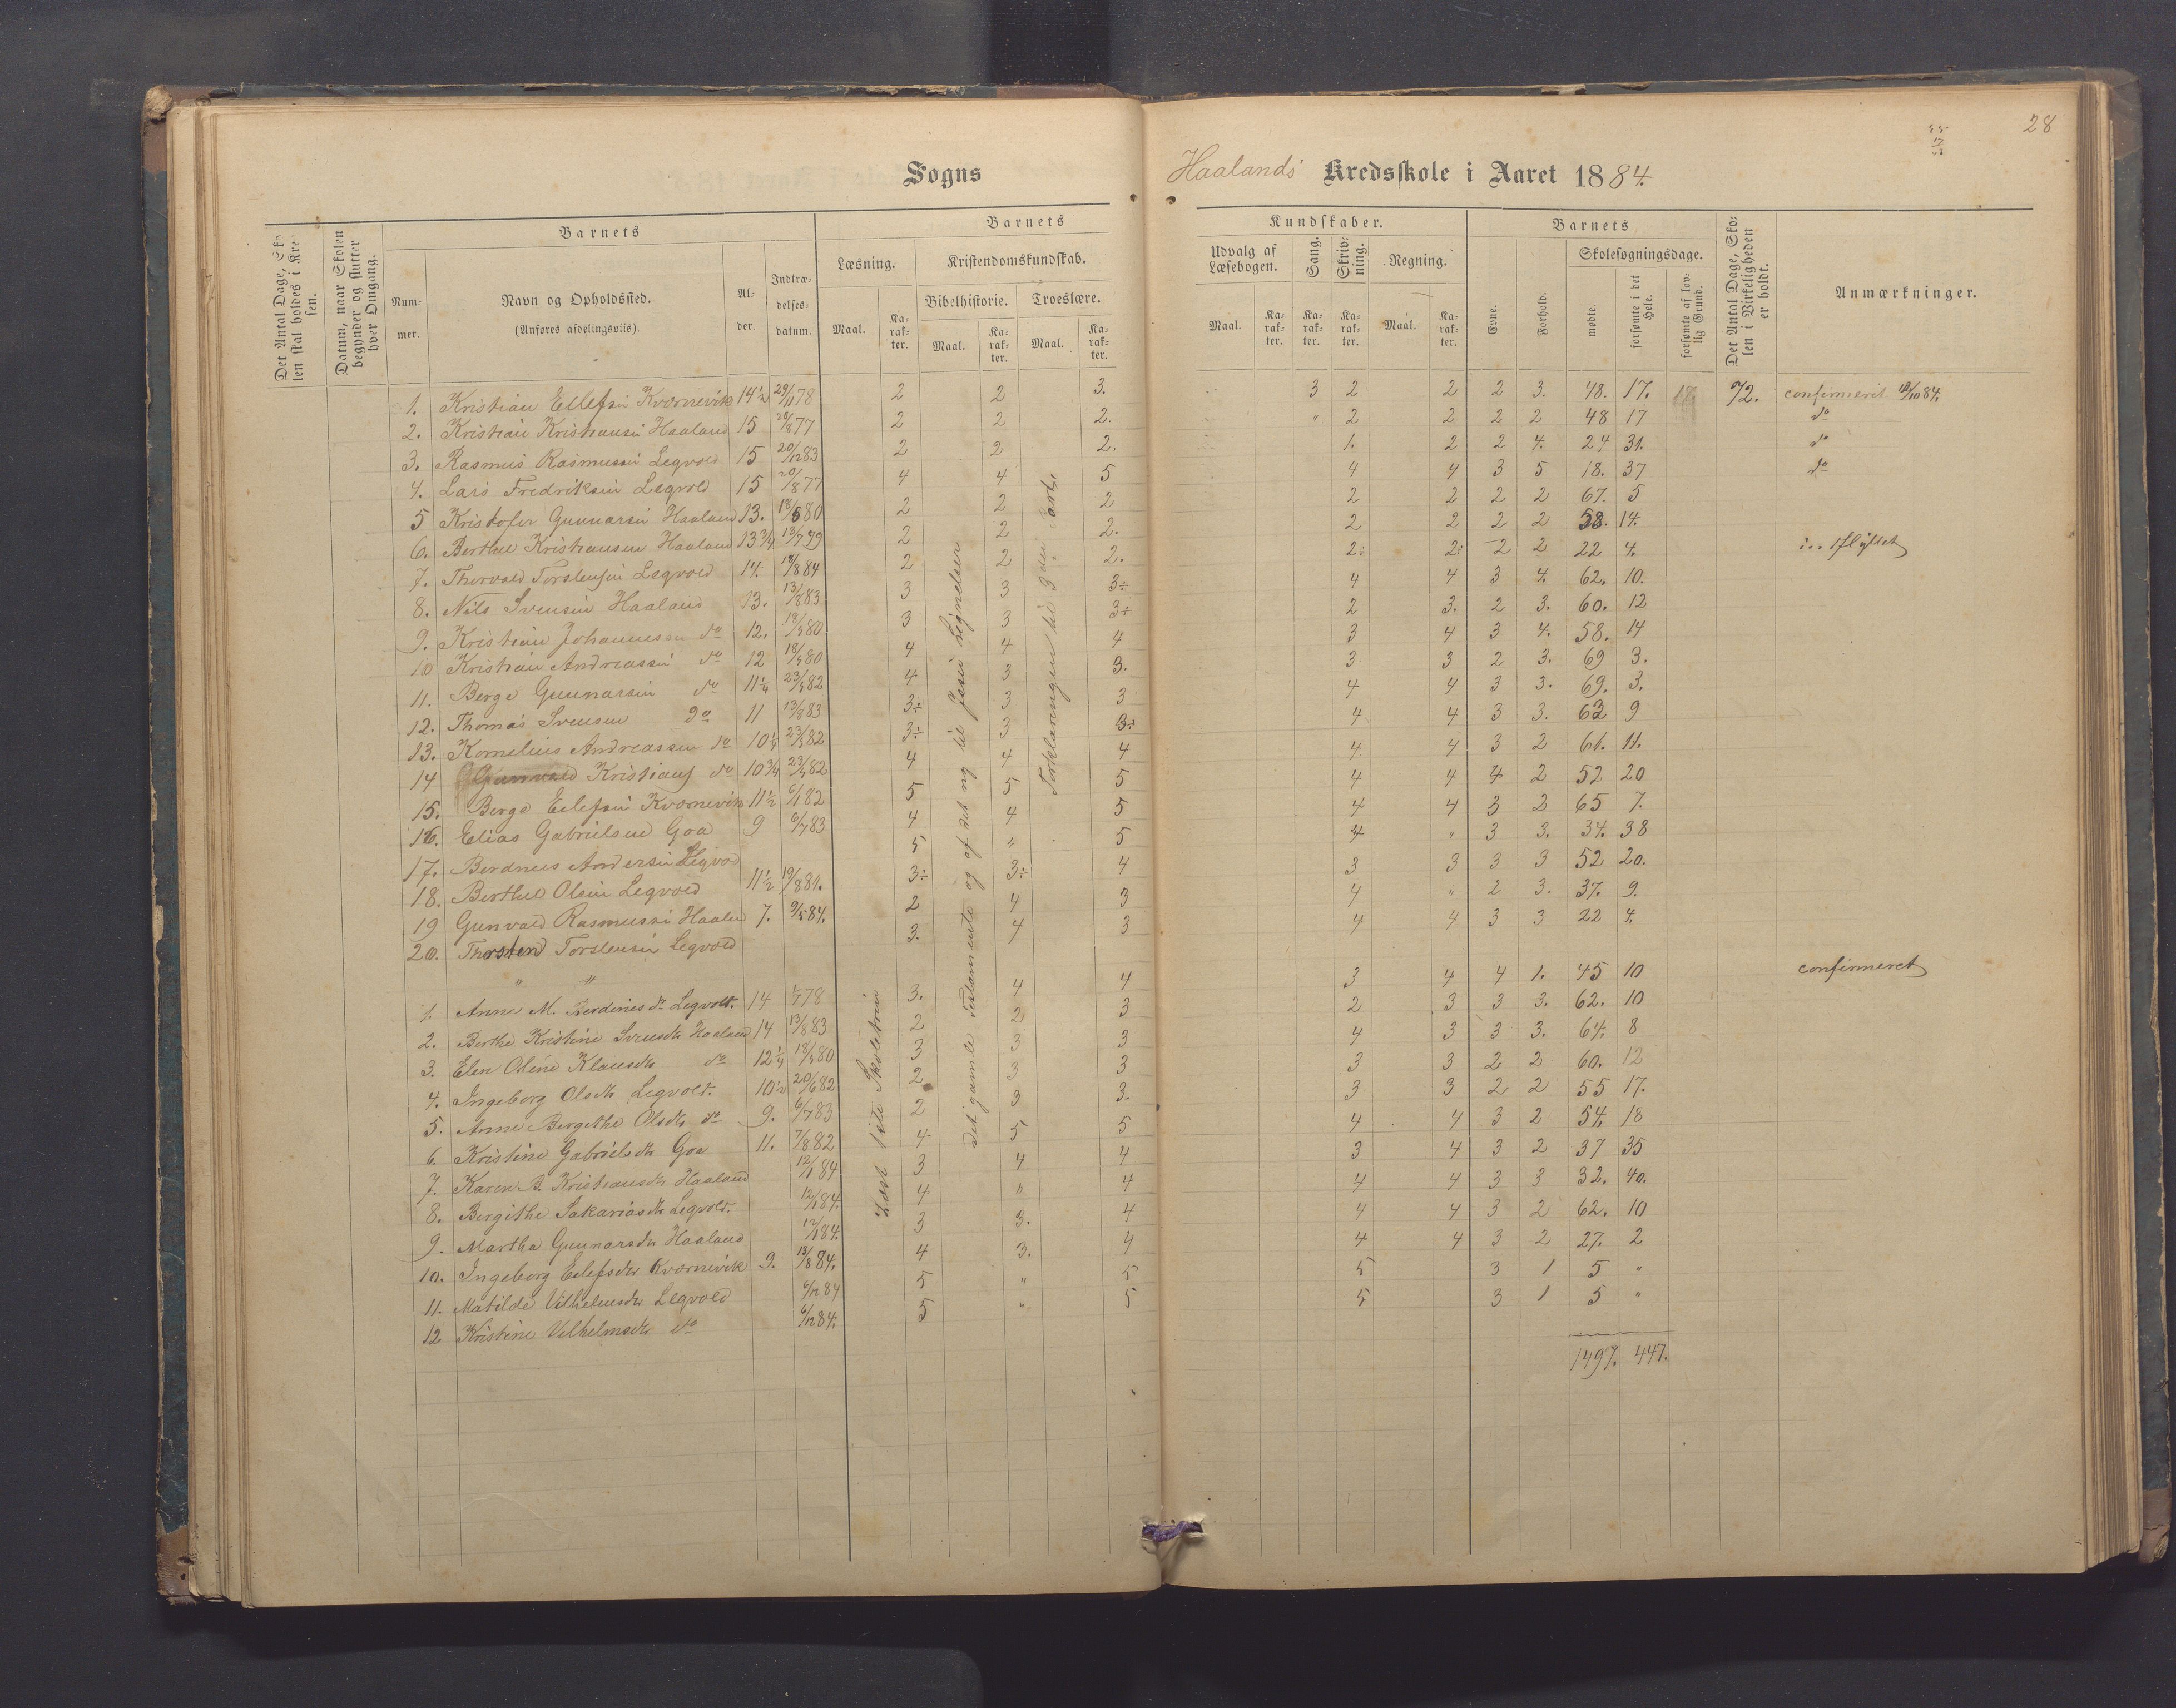 28
Sogns Haalands Kredsskole i Aaret 1884.
Det Antal Dage, Skolen skal holdes i Kredsen.
Datum, naar Skolen begynder og slutter hver Omgang.
Barnets
Nummer.
Navn og Opholdssted.
(Anføres afdelingsviis).
Alder.
Indtrædelsesdatum.
Barnets
Læsning.
Maal. Karakter.
Kristendomskundskab.
Bibelhistorie. Troeslære.
Maal. Karakter. Maal. Karakter.
Kundskaber.
Udvalg af Læsebogen.
Maal. Karakter.
Sang.
Karakter.
Skrivning.
Karakter.
Regning.
Maal. Karakter.
Barnets
Evne.
Forhold.
Skolesøgningsdage.
mødte.
forsømte i det Hele.
forsømte af lovlig Grund.
Det Antal Dage, Skolen i Virkeligheden er holdt.
Anmærkninger.
1. Kristian Ellefsen Kvornevik 14½ 29/11 78 2 2 3. 3 2 2 2 3. 48. 17. 72. confirmerit 12/10 84.
2. Kristian Kristiansen Haaland 15 20/8 77 2 2 2. " 2 2 2 2 48 17 do
3. Rasmus Rasmussen Legvold 15 20/12 83 2 2 2. 1. 2 2 4. 24 31. do
4. Lars Fredriksen Legvold 15 20/8 77 4 4 5 4 4 3 5 18. 37 do
5 Kristofer Gunnarsen Haaland 13. 18/5 80 2 2 2 2 2 2 2 67. 5
6. Berthel Kristiansen Haaland 13¾ 13/7 79 2 2 2. 2 2 2 2 58. 14.
7. Thorvald Torstensen Legvold 14. 18/8 84 2 2 2. 2÷ 2÷ 2 2 22 4.
8. Nils Svensen Haaland 13. 13/8 83 3 3 3÷ 4 4 3 4. 62. 10.
9. Kristian Johannessen do 12. 18/5 80 3 3 3÷ 2 3. 2 3. 60. 12
10 Kristian Andreassen do 12 18/5 80 4 4 4 3 4 3 4. 58. 14
11. Berge Gunnarsen do 11¼ 23/5 82 4 3 3. 3 3 2 3. 69 3.
12. Thomas Svensen do 11 13/8 83 3÷ 3 3 4 4 3 3. 69. 3.
13. Kornelius Andreassen do 10¼ 23/5 82 3÷ 3 3÷ 4 4 3 3. 63 9
14 Gunvald Kristians do 10¾ 23/5 82 4 4 4 4 4 3 2 61. 11.
15. Berge Eilefsen Kvornevik 11½ 6/1 82 5 5 5 4 4 4 2 52 20
16. Elias Gabrielsen Goa 9 6/7 83 4 4 5 4 4 3 2 65 7.
17. Berdnus Andersen Legvold 5 " 5 4 " 3 3. 34. 38
18. Berthel Olsen Legvold 11½ 19/8 81. 3÷ 3÷ 4 3 3 3 3 52 20.
19 Gunvald Rasmussen Haaland 7. 9/5 84. 2 4 3 4 " 2 3. 37. 9.
20. Thorsten Torstensen Legvold 3. 4 3 4 4 3 3 22 4.
" "
1. Anne M. Berdines dr Legvold. 14 78 3. 4 4 3 4 4 1. 45 10 confirmeret
2. Berthe Kristine Svensdtr Haaland 14 13/8 83 2 2 3 2 3 3 3. 62. 10
3. Elen Oline Klausdtr do 12¼ 18/5 80 3 3 3 4 3 3 3. 64. 8
4. Ingeborg Olsdtr Legvold. 10½ 20/6 82 2 3 3 3 3 2 2 60. 12
5. Anne Bergithe Olsdtr do 9. 6/7 83 2 3 3. 3 3 2 2 55 17.
6. Kristine Gabrielsdtr Goa 11. 7/8 82 4 5 5 4 4 3 2 54. 18
7. Karen B. Kristiansdtr Haaland 12/1 84 3 4 4 3 4 3 2 37 35
8. Bergithe Sakariasdtr Legvold. 12/1 84. 4 " 4 4 4 3 3 32. 40.
9. Martha Gunnarsdtr Haaland 12/1 84. 3 3. 4 4 4 3 2 62. 10
10. Ingeborg Eilefsdtr Kvornevik 9. 13/8 84. 4 3. 4 4 4 3 2 27. 2
11. Matilde Vilhelmsdtr Legvold 6/12 84 5 " 5 5 3 1 5 "
12 Kristine Vilhelmsdtr do 6/12 84. 5 " 5 5 3 1 5 "
1497. 447.
Læst 1ste Skoletrin
det gamle Testamente og af det ny til Jesu Lignelser
Forklaringen til 3die Part.